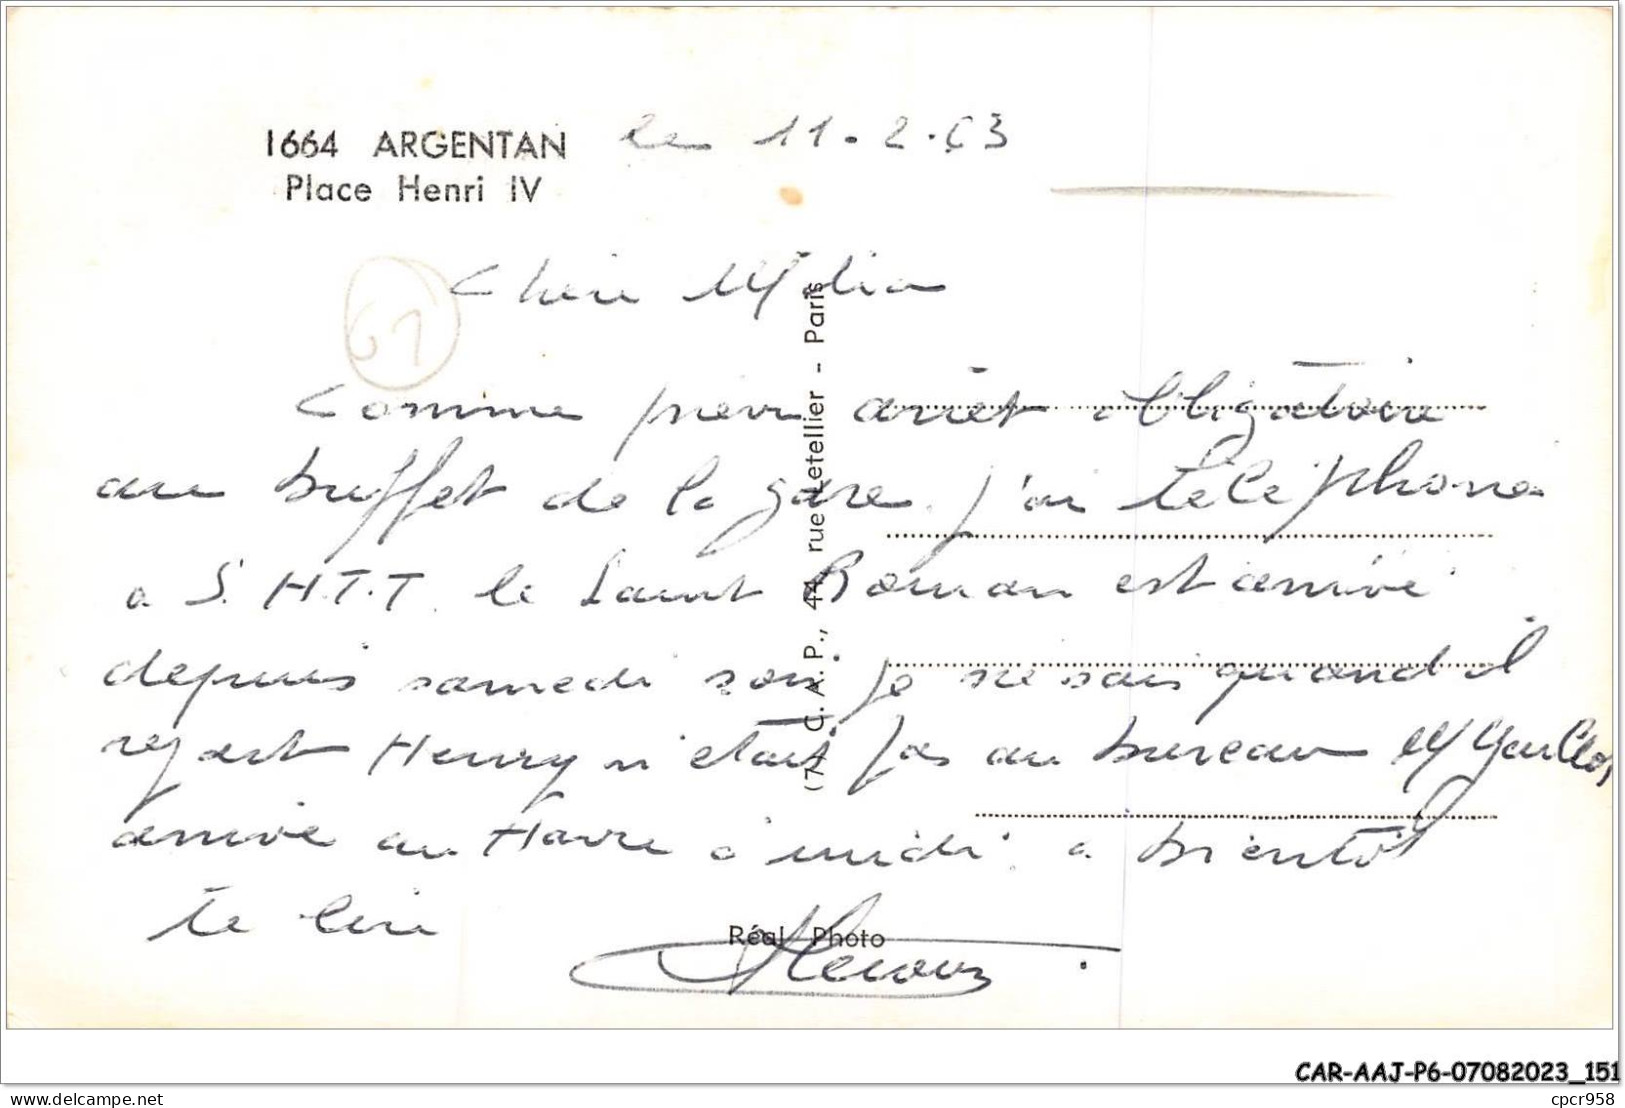 1664 ARGENTAN le 11.2.63
Place Henri IV
Chère
61
Comme prévu arrêt obligatoire
au buffet de la gare. j'ai téléphoné
a S.H.T.T. le Saint Roman est arrivé
depuis samedi soir je ne sais quand il
repart Henry n'était pas au bureau
arrive au Havre à midi. a bientôt
te lire
(7) C. A. P., 44, rue Letellier - Paris
Réal Photo
CAR-AAJ-P6-07082023_151
delcampe.net
cpcr958